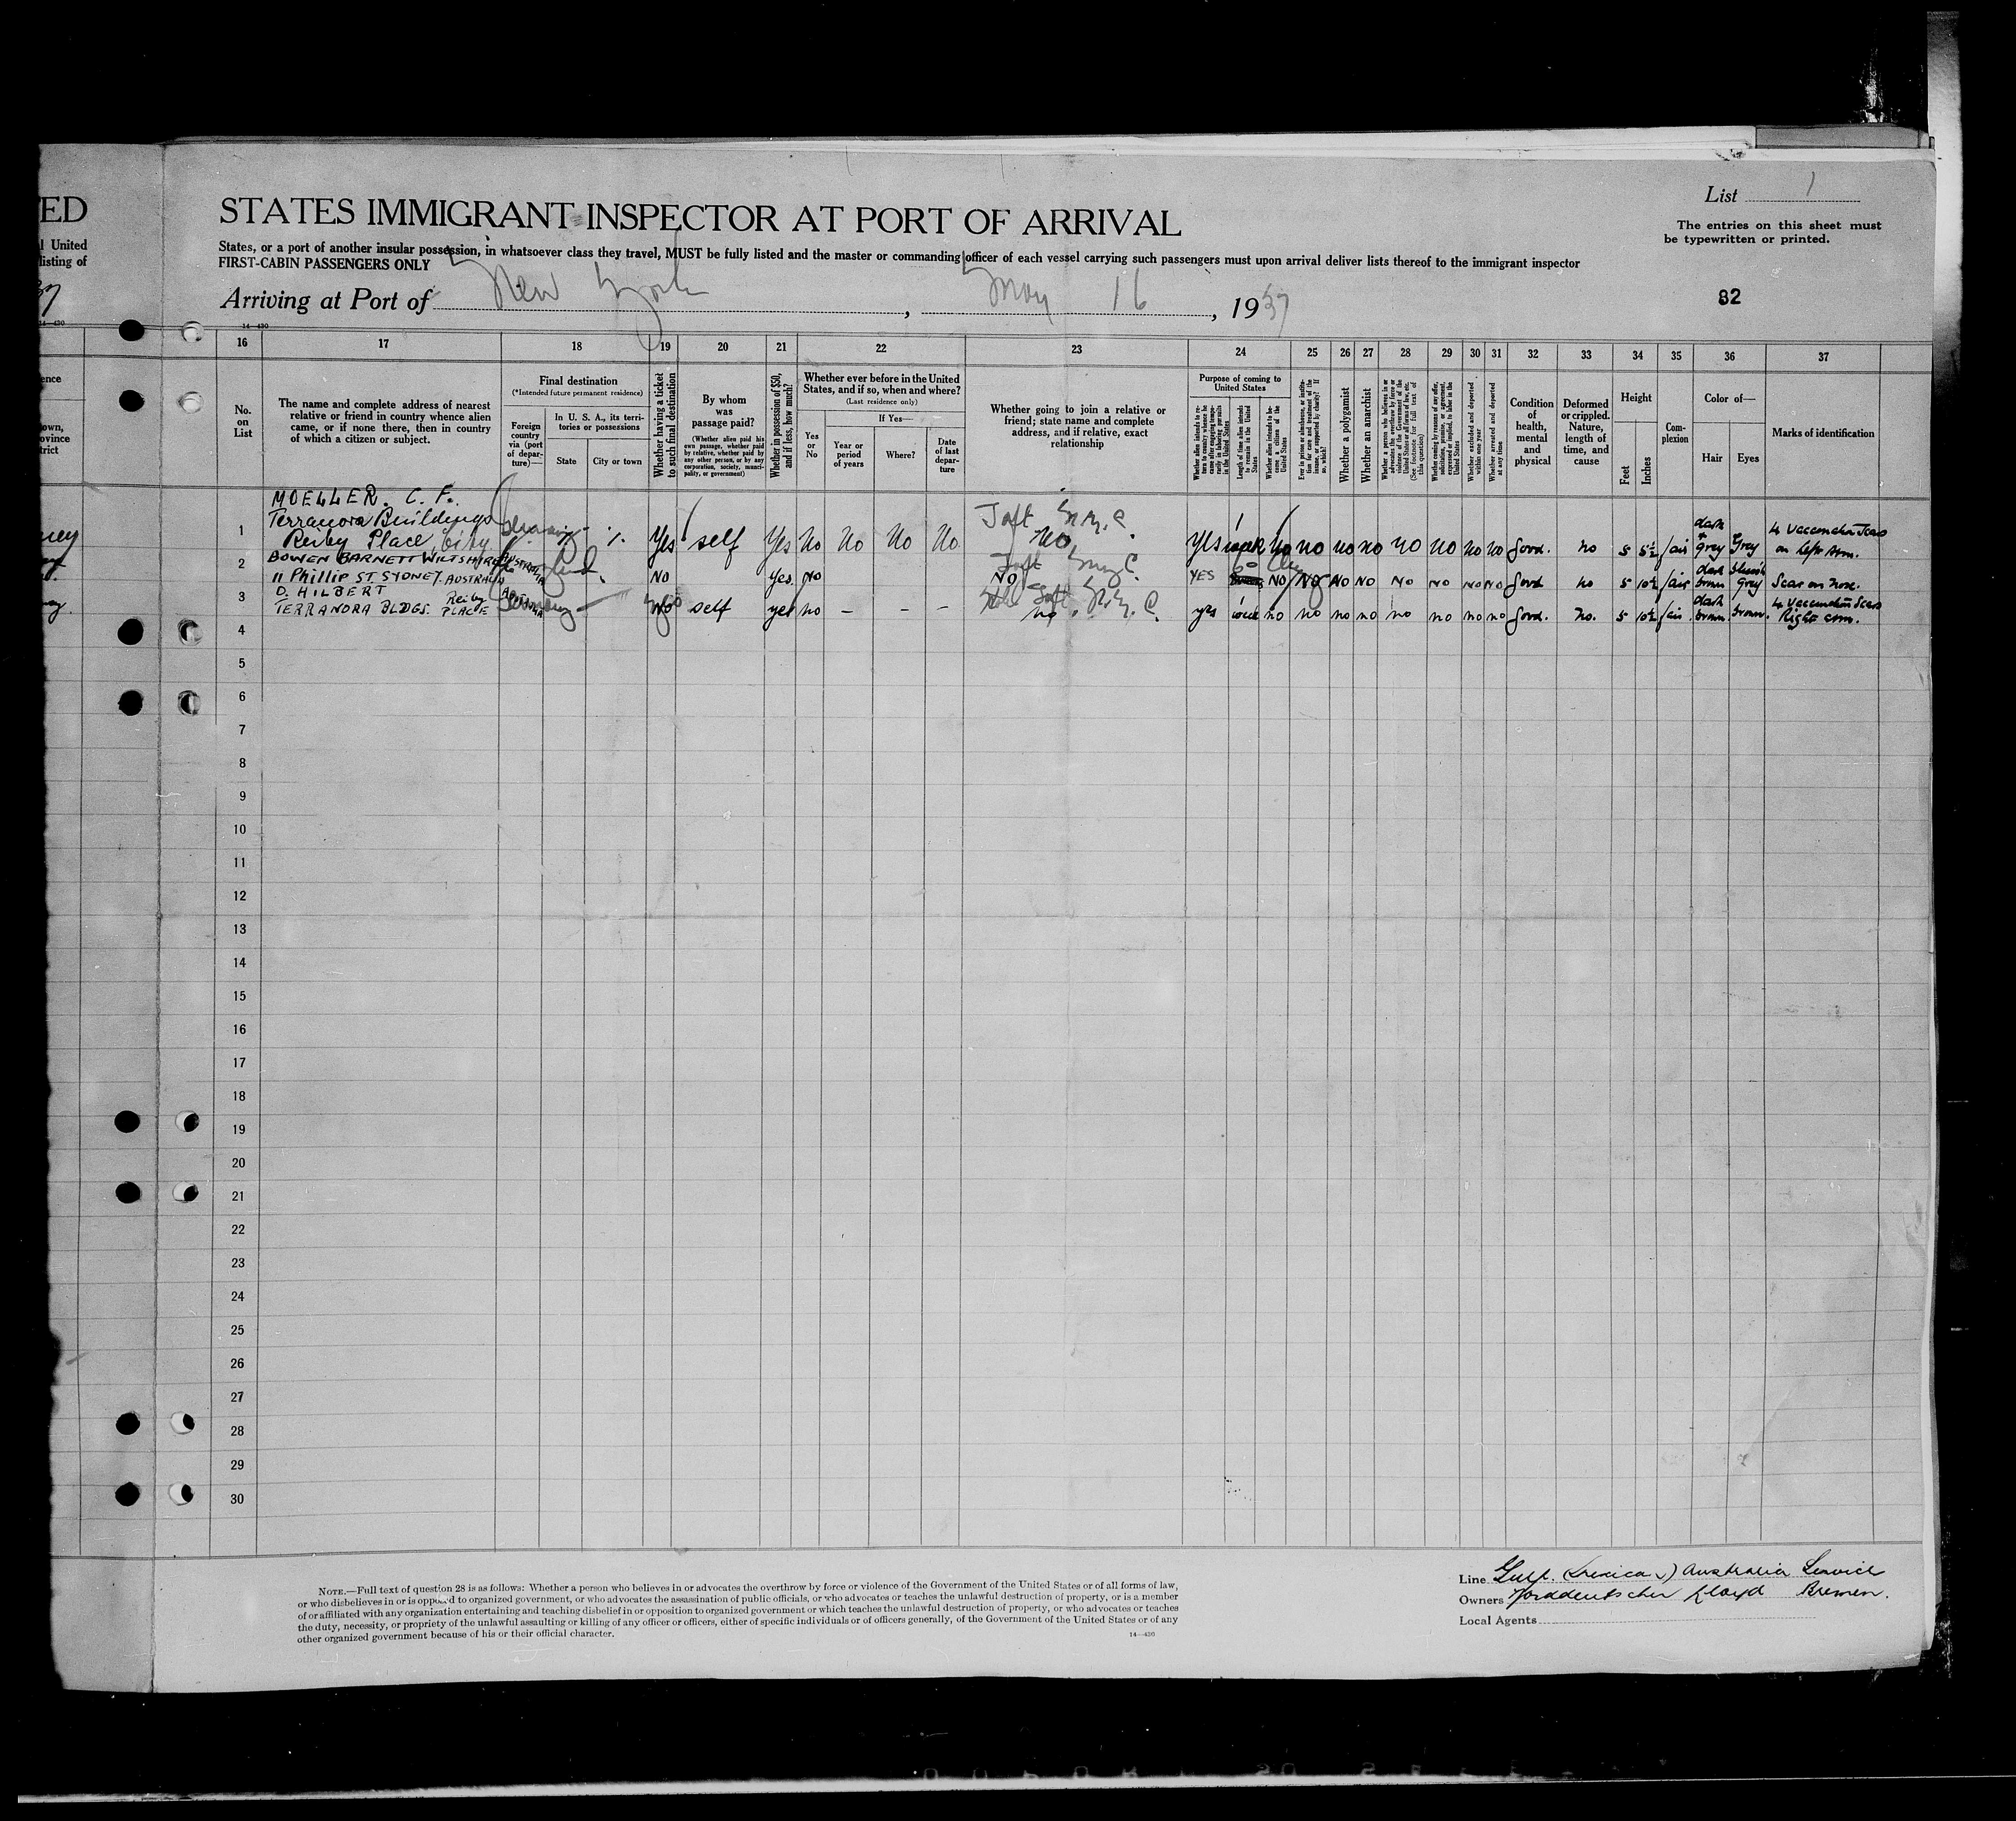 ED
l United
listing of
37
14—430
ence
own,
ovince
trict
ney
List 1
The entries on this sheet must
be typewritten or printed.
STATES IMMIGRANT INSPECTOR AT PORT OF ARRIVAL
States, or a port of another insular possession, in whatsoever class they travel, MUST be fully listed and the master or commanding officer of each vessel carrying such passengers must upon arrival deliver lists thereof to the immigrant inspector
FIRST-CABIN PASSENGERS ONLY
Arriving at Port of New York, May 16, 1937
82
14—430
16 17 18 19 20 21 22 23 24 25 26 27 28 29 30 31 32 33 34 35 36 37
No.
on
List
The name and complete address of nearest
relative or friend in country whence alien
came, or if none there, then in country
of which a citizen or subject.
Final destination
(*Intended future permanent residence)
Foreign
country
via (port
of depar-
ture)—
In U. S. A., its terri-
tories or possessions
State
City or town
Whether having a ticket
to such final destination
By whom
was
passage paid?
(Whether alien paid his
own passage, whether paid
by relative, whether paid by
any other person, or by any
corporation, society, munici-
pality, or government)
Whether in possession of $50,
and if less, how much?
Whether ever before in the United
States, and if so, when and where?
(Last residence only)
Yes
or
No
If Yes—
Year or
period
of years
Where?
Date
of last
depar-
ture
Whether going to join a relative or
friend; state name and complete
address, and if relative, exact
relationship
Purpose of coming to
United States
Length of time alien intends
to remain in the United
States
Whether alien intends to be-
come a citizen of the
United States
Whether a polygamist
Whether an anarchist
Whether excluded and deported
within one year
Whether arrested and deported
at any time
Condition
of
health,
mental
and
physical
Deformed
or crippled.
Nature,
length of
time, and
cause
Height
Feet
Inches
Com-
plexion
Color of—
Hair
Eyes
Marks of identification
MOELLER. C. F.
Terranova Buildings
1 Reiby Place City Yes self Yes No No No No No Yes 1 week No no no no no no no no Good. no 5 5½ fair dark + grey Grey 4 vaccination scars on left arm.
2 BOWEN BARNETT WILTSHIRE AUSTRALIA
11 Phillip ST. SYDNEY. AUSTRALIA No Yes. No No YES 60 NO NO NO NO NO NO NO NO Good no 5 10½ fair dark brown Grey Scar on nose.
3 O. HILBERT
TERRANORA BLDGS. Reiby PLACE No self yes no – – – no yes 1 week no no no no no no no no Good. No. 5 10½ fair dark brown brown 4 vaccination scars Right arm.
4
5
6
7
8
9
10
11
12
13
14
15
16
17
18
19
20
21
22
23
24
25
26
27
28
29
30
NOTE.—Full text of question 28 is as follows: Whether a person who believes in or advocates the overthrow by force or violence of the Government of the United States or of all forms of law,
or who disbelieves in or is opposed to organized government, or who advocates the assassination of public officials, or who advocates or teaches the unlawful destruction of property, or is a member
of or affiliated with any organization entertaining and teaching disbelief in or opposition to organized government or which teaches the unlawful destruction of property, or who advocates or teaches
the duty, necessity, or propriety of the unlawful assaulting or killing of any officer or officers, either of specific individuals or of officers generally, of the Government of the United States or of any
other organized government because of his or their official character.
14—430
Line Gulf (Mexico) Australia Service
Owners Norddeutscher Lloyd Bremen.
Local Agents